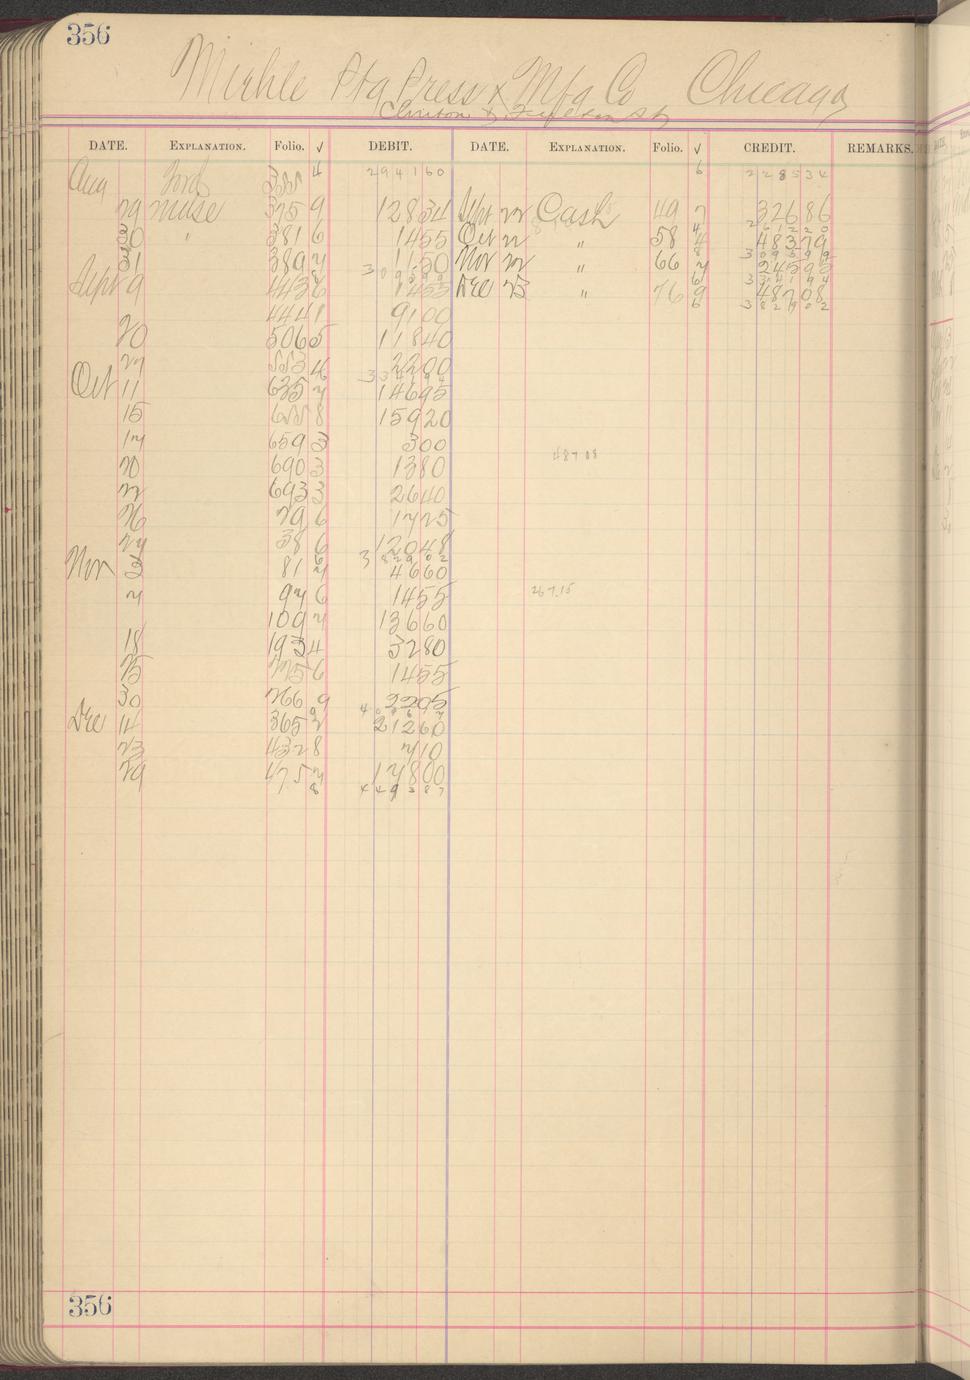 356
Miehle Ptg Press & Mfg Co Chicago
Clinton &
DATE. EXPLANATION. Folio. √ DEBIT. DATE. EXPLANATION. Folio. √ CREDIT. REMARKS.
Aug Ford 355 4 294160 6 228534
29 mdse 375 9 12834 Sept 22 Cash 49 7 32686
30 " 381 6 1455 Oct 22 " 58 4 48379
31 389 7 1150 Nov 22 " 66 7 24595
Sept 9 443 6 1455 Dec 23 " 76 9 48708
444 1 9100
20 506 5 11840
27 553 4 2200
Oct 11 635 7 14695
15 655 8 15920
17 659 3 300
487.08
20 690 3 1380
22 693 3 2640
26 29 6 1725
27 38 6 12048
382902
Nov 2 81 7 4660
7 97 6 1455
267.15
109 7 13660
18 193 4 3280
25 225 6 1455
30 266 9 2205
Dec 14 365 2 21260
23 432 8 710
29 475 7 17800
8 449387
356